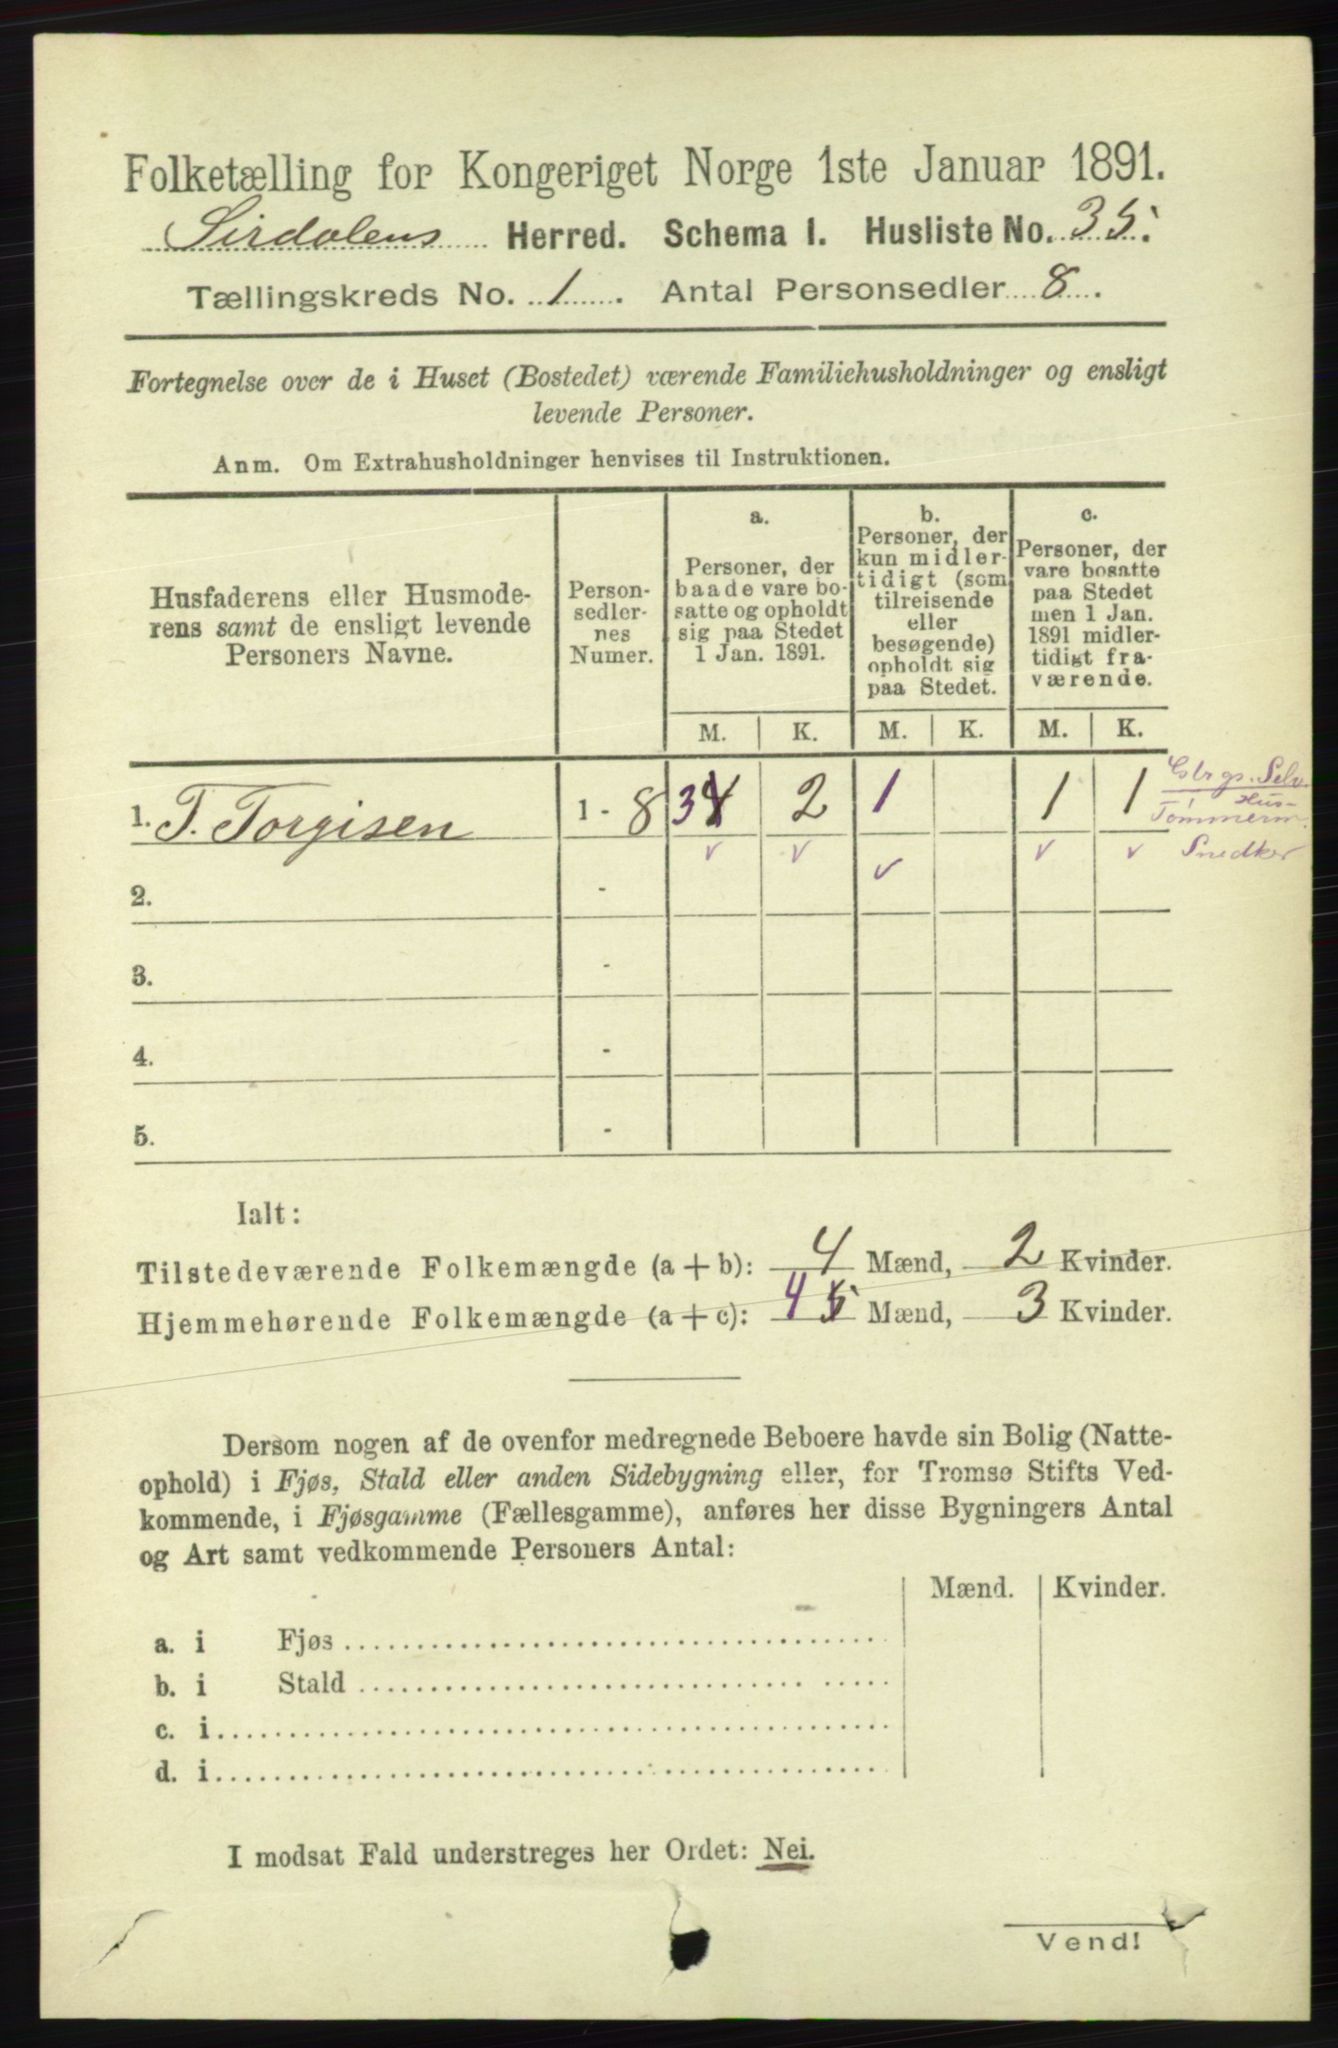 Folketælling for Kongeriget Norge 1ste Januar 1891.
Sirdalens Herred. Schema I. Husliste No. 35.
Tællingskreds No. 1. Antal Personsedler 8.
Fortegnelse over de i Huset (Bostedet) værende Familiehusholdninger og ensligt
levende Personer.
Anm. Om Extrahusholdninger henvises til Instruktionen.
Husfaderens eller Husmode-
rens samt de ensligt levende
Personers Navne.
Person-
sedler-
nes
Numer.
a.
Personer, der
baade vare bo-
satte og opholdt
sig paa Stedet
1 Jan. 1891.
b.
Personer, der
kun midler-
tidigt (som
tilreisende
eller
besøgende)
opholdt sig
paa Stedet.
c.
Personer, der
vare bosatte
paa Stedet
men 1 Jan.
1891 midler-
tidigt fra-
værende.
M. K. M. K. M. K.
1. T. Torgisen 1 - 8 3 4 2 1 1 1
Selv.
Hus-
Tømmerm.
Snedker
v v v v v
2. -
3. -
4. -
5. -
Ialt:
Tilstedeværende Folkemængde (a + b): 4 Mænd, 2 Kvinder.
Hjemmehørende Folkemængde (a + c): 4 5 Mænd, 3 Kvinder.
Dersom nogen af de ovenfor medregnede Beboere havde sin Bolig (Natte-
ophold) i Fjøs, Stald eller anden Sidebygning eller, for Tromsø Stifts Ved-
kommende, i Fjøsgamme (Fællesgamme), anføres her disse Bygningers Antal
og Art samt vedkommende Personers Antal:
Mænd. Kvinder.
a. i Fjøs
b. i Stald
c. i
d. i
I modsat Fald understreges her Ordet: Nei.
Vend!